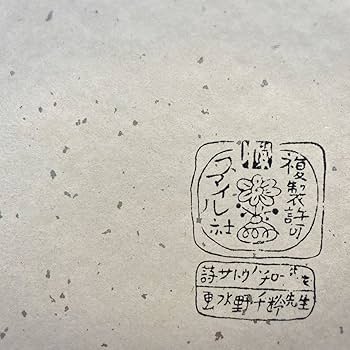 複製許可
スマイル社
詩サトウハチロー先生
水野千粋先生